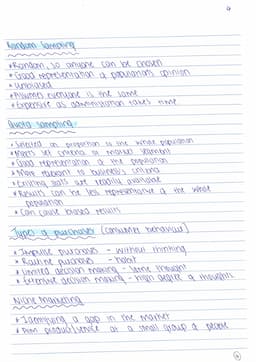 Random Sampling
* Random, so anyone can be chosen
* Good representation of populations opinion
* Unbiased
* Assumes everyone is the same
* Expensive as administration takes time
Quota Sampling
* Selected as proportion to the whole population
* Meets set criteria or market segment
* Good representation of the population
* More relevant to business's criteria
* Existing lists are readily available
* Results can be less representative of the whole
population
* Can cause biased results
Types of purchases (consumer behaviour)
* Impulse purchases - without thinking
* Routine purchases - habit
* Limited decision making - some thought
* Extensive decision making - high degree of thought
Niche Marketing
* Identifying a gap in the market
* Aim product/service at a small group of people